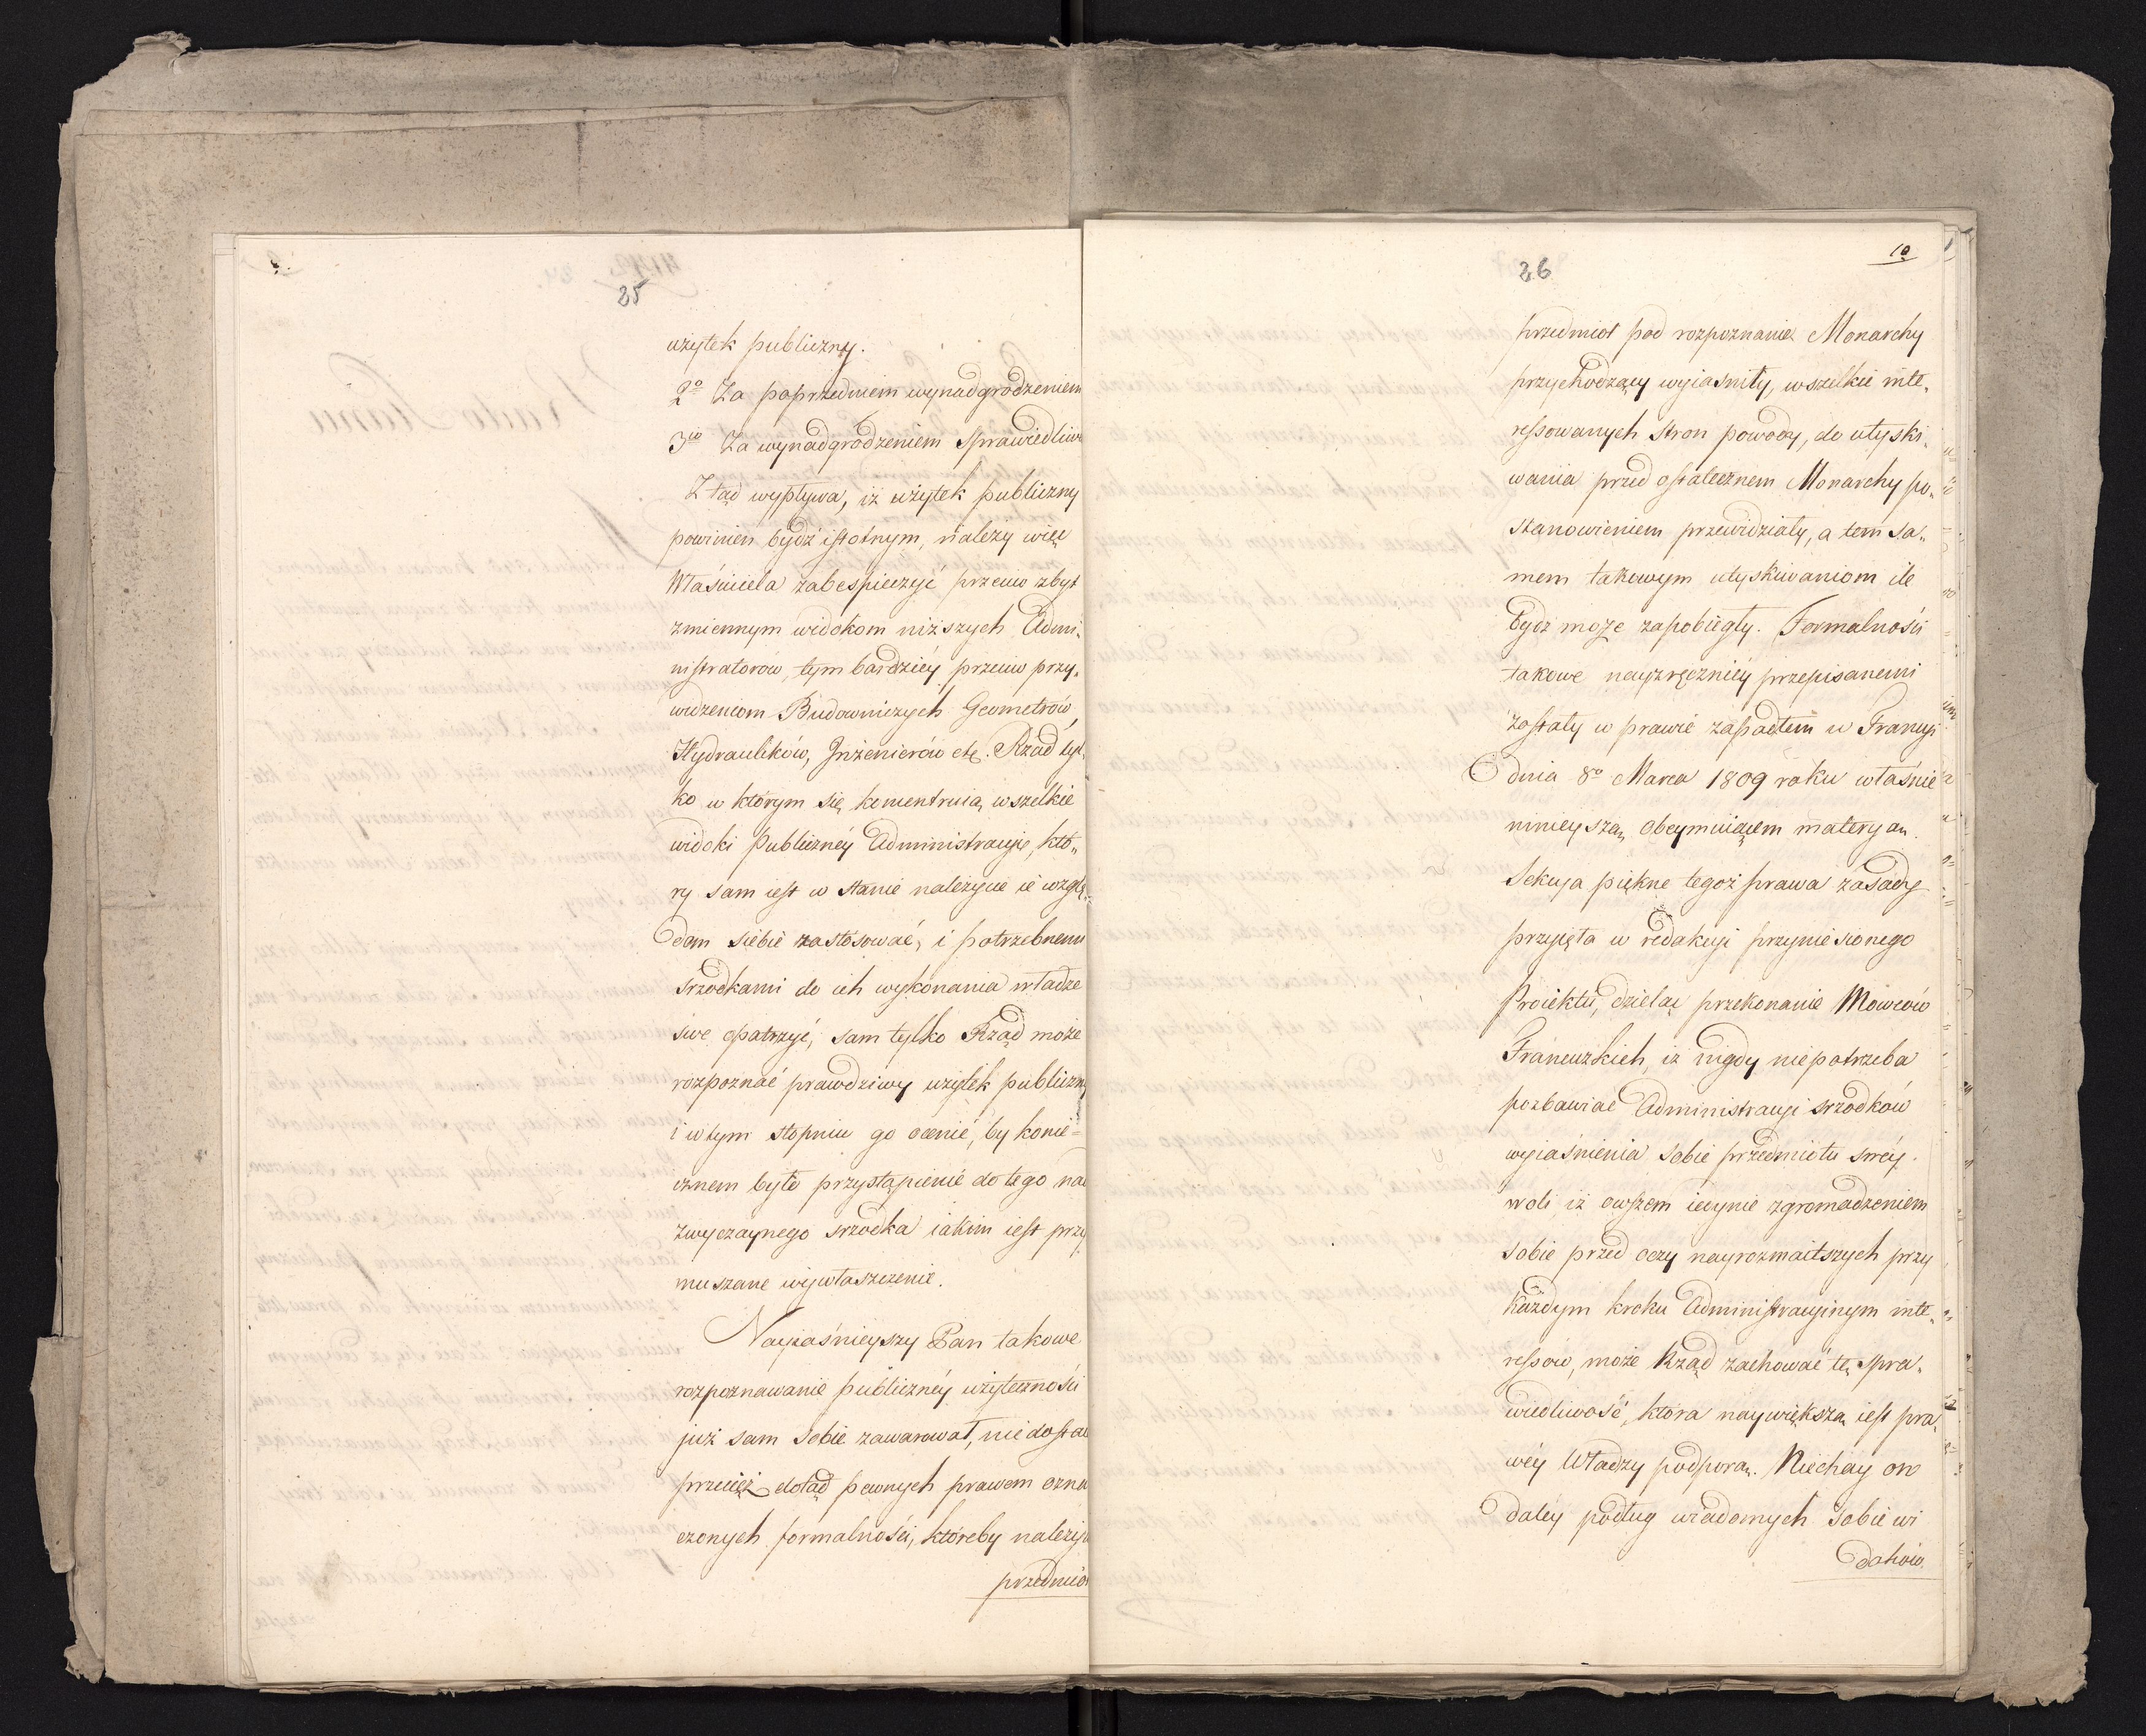 25
użytek publiczny.
2o Za poprzedniem wynadgrodzeniem
3io Za wynadgrodzeniem sprawiedliwe
Ztąd wypływa, iż użytek publiczny
powinien bydź istotnym, należy więc
Właściciela zabespieczyć przeciw zbyt
zmiennym widokom niższych Admi„
nistratorów, tym bardziéy przeciw przy„
widzeniom Budowniczych Geometrów,
Hydraulików, Inżenierów etc. Rząd tyl„
ko w którym się koncentruią wszelkie
widoki Publicznéy Administracyi, któ„
ry sam iest w stanie należycie ie wzglę„
dem siebie zastosować, i potrzebnemi
srzodkami do ich wykonania władze
swe opatrzyć, sam tylko Rząd może
rozpoznać prawdziwy użytek publiczny
i w tym stopniu go ocenić, by konie=
cznem było przystąpienie do tego nad
zwyczaynego srzodka iakim iest przy
muszane wywłaszczenie.
Nayiaśnieyszy Pan takowe
rozpoznawanie publicznéy użyteczności
już sam Sobie zawarował, niedostaie
przecież dotąd pewnych prawem ozna
czonych formalności, któreby należy
przedmio
26
10
przedmiot pod rozpoznanie Monarchy
przychodzący wyiaśniły, wszelkie inte„
ressowanych stron powody, do utyski„
wania przed ostatecznem Monarchy po„
stanowieniem przewidziały, a tem sa„
mem takowym utyskiwaniom ile
bydź może zapobiegły. Formalności
takowe nayzręczniéy przepisanemi
zostały w prawie zapadłem w Francyi
dnia 8o Marca 1809 roku właśnie
ninieyszą obeymuiącem materyą.
Sekcya piękne tegoż prawa zasady
przyięta w redakcyi przyniesionego
Proiektu, dzieląc przekonanie Mówców
Francuzkich, iż nigdy niepotrzeba
pozbawiać Administracyi srzodków
wyiaśnienia sobie przedmiotu swéy
woli, iż owszem iedynie zgromadzeniem
sobie przed oczy nayrozmaitszych przy
każdym kroku Administracyinym inte„
ressów, może Rząd zachować tę spra„
wiedliwość, która naywiększą iest pra„
wéy Władzy podporą. Niechay on
daléy podług wiadomych Sobie wi
doków